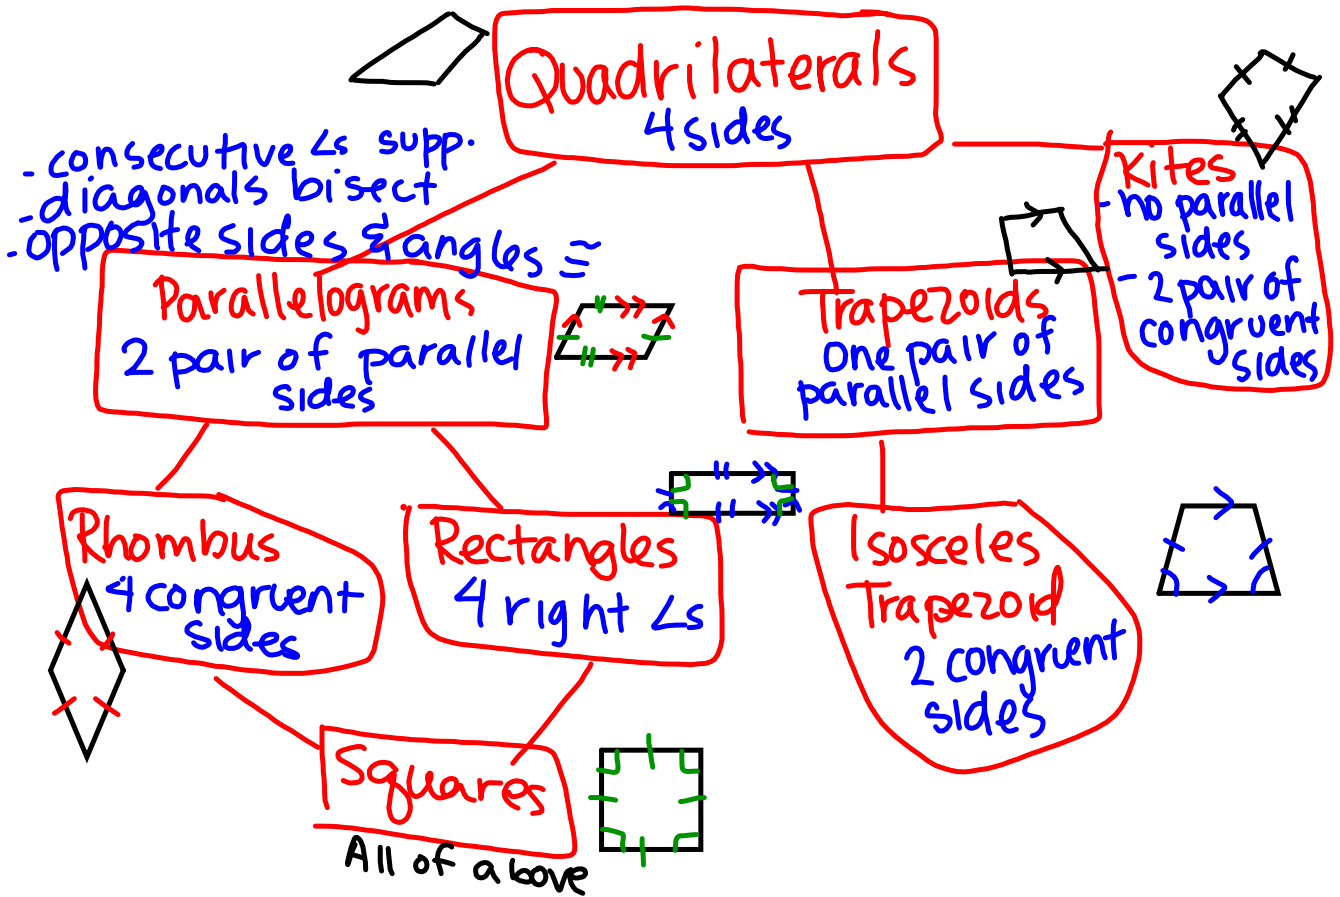 Quadrilaterals
4 sides
- consecutive ∠s supp.
- diagonals bisect
- opposite sides & angles ≅
Parallelograms
2 pair of parallel
sides
Trapezoids
one pair of
parallel sides
Kites
- no parallel
sides
- 2 pair of
congruent
sides
Rhombus
4 congruent
sides
Rectangles
4 right ∠s
Isosceles
Trapezoid
2 congruent
sides
Squares
All of above